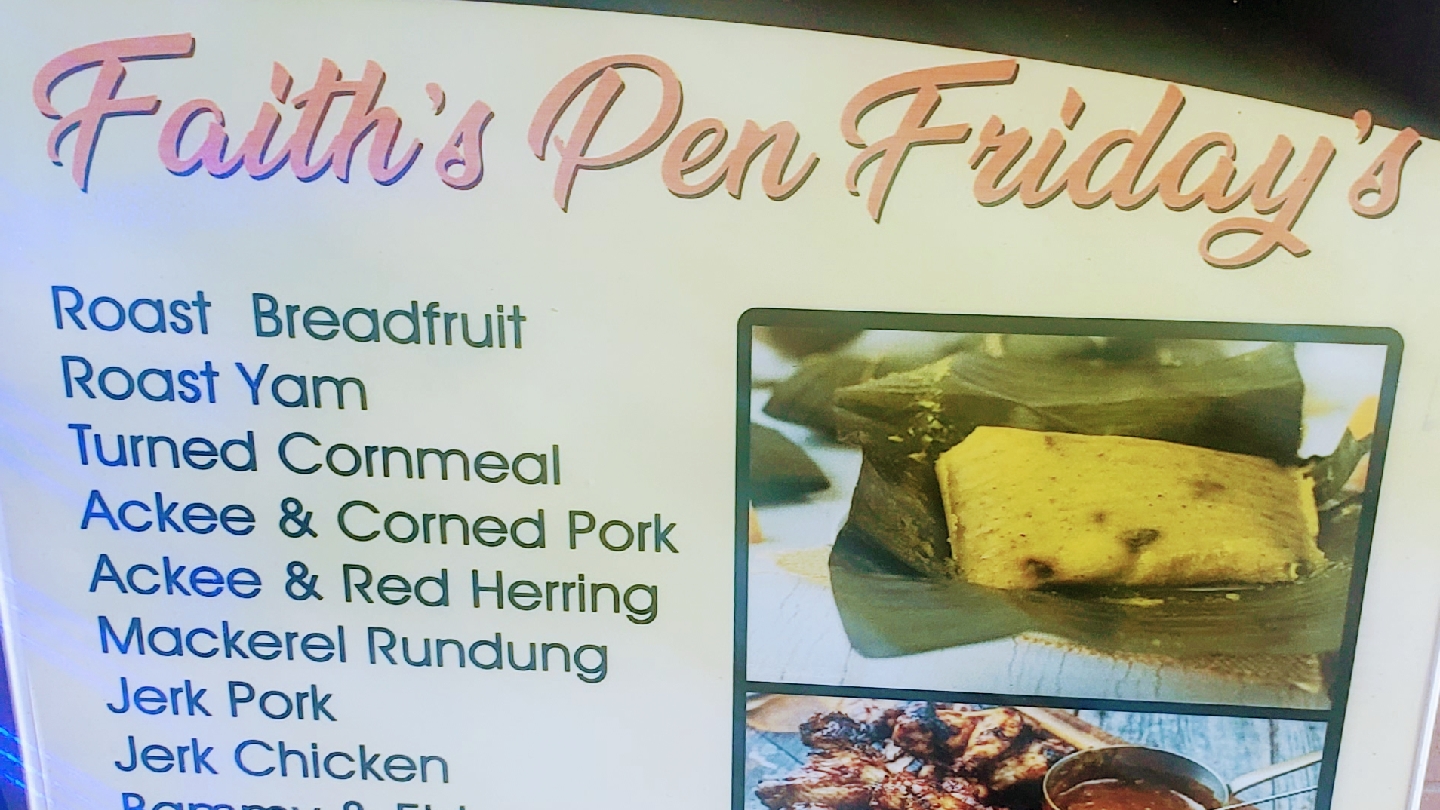 Faith's Pen Friday's
Roast Breadfruit
Roast Yam
Turned Cornmeal
Ackee & Corned Pork
Ackee & Red Herring
Mackerel Rundung
Jerk Pork
Jerk Chicken
Bammy &